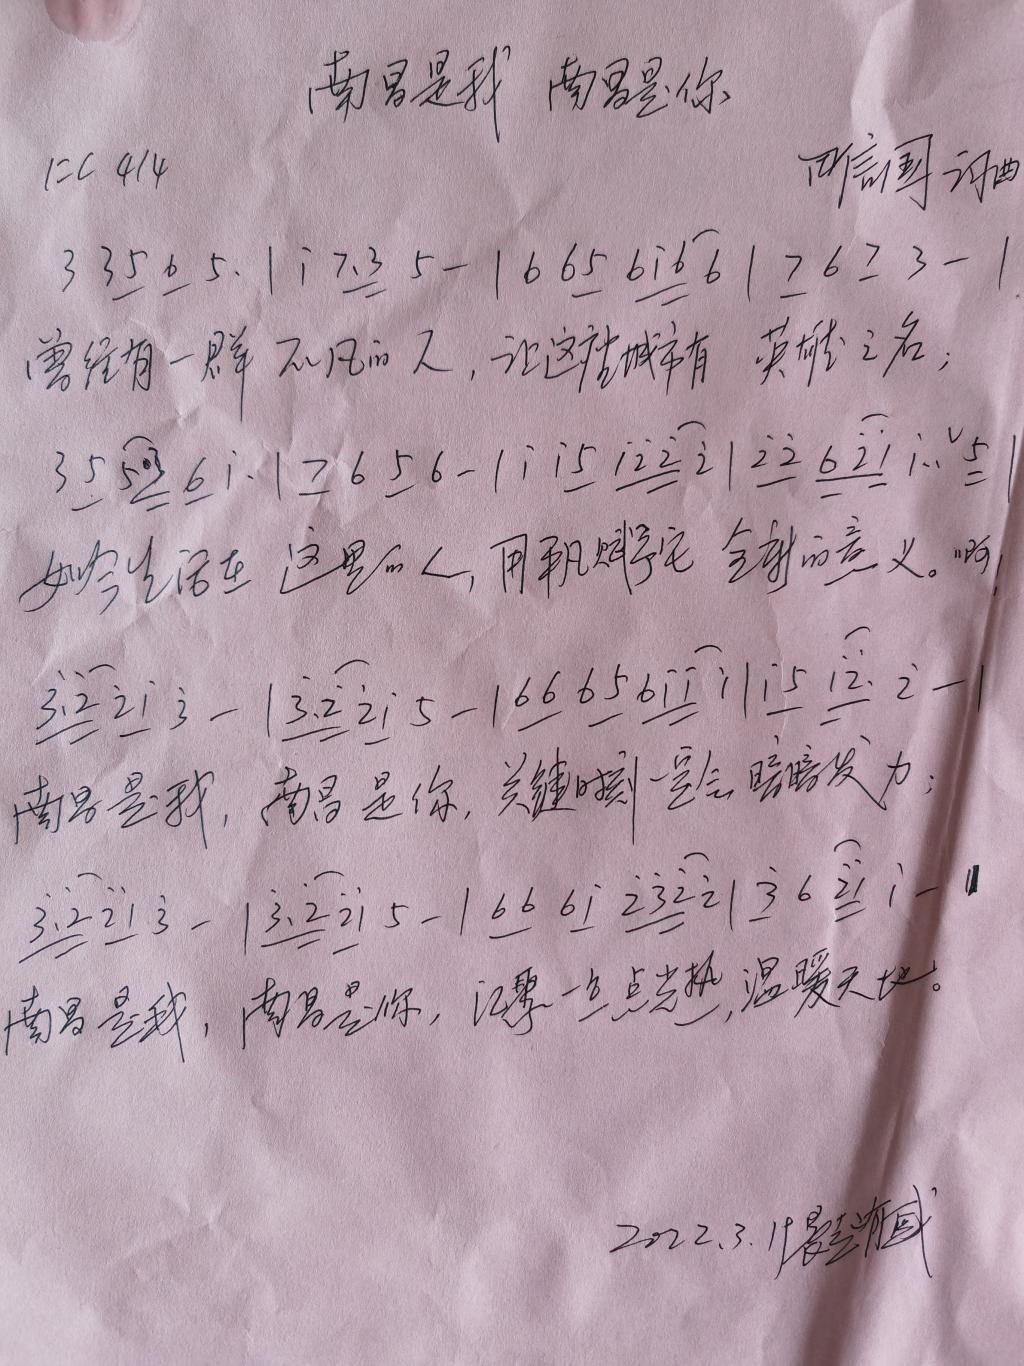 南昌是我 南昌是你
1=C 4/4 信国 词曲
3 3 5 6 5. | i 7.3 5 - | 6 6 5 6 i 6 6 | 7 6 7 3 - |
曾经有一群 不凡的人，让这座城市有 英雄之名；
3 5 5 3 6 i. | 7 6 5 6 - | i i 5 i 2 2 2 | 2 2 6 2 i i.. ˅ 5 |
如今生活在 这里的人，用平凡赋予它 全新的意义。啊！
3. 2 2 i 3 - | 3. 2 2 i 5 - | 6 6 6 5 6 i i i | i 5 i 2. 2 - |
南昌是我，南昌是你，关键时刻一定会 暗暗发力；
3. 2 2 i 3 - | 3. 2 2 i 5 - | 6 6 6 i 2 3 2 2 | 3 6 2 i i -
南昌是我，南昌是你，汇聚一点点光热，温暖天地。
2022.3.1 晨 有感